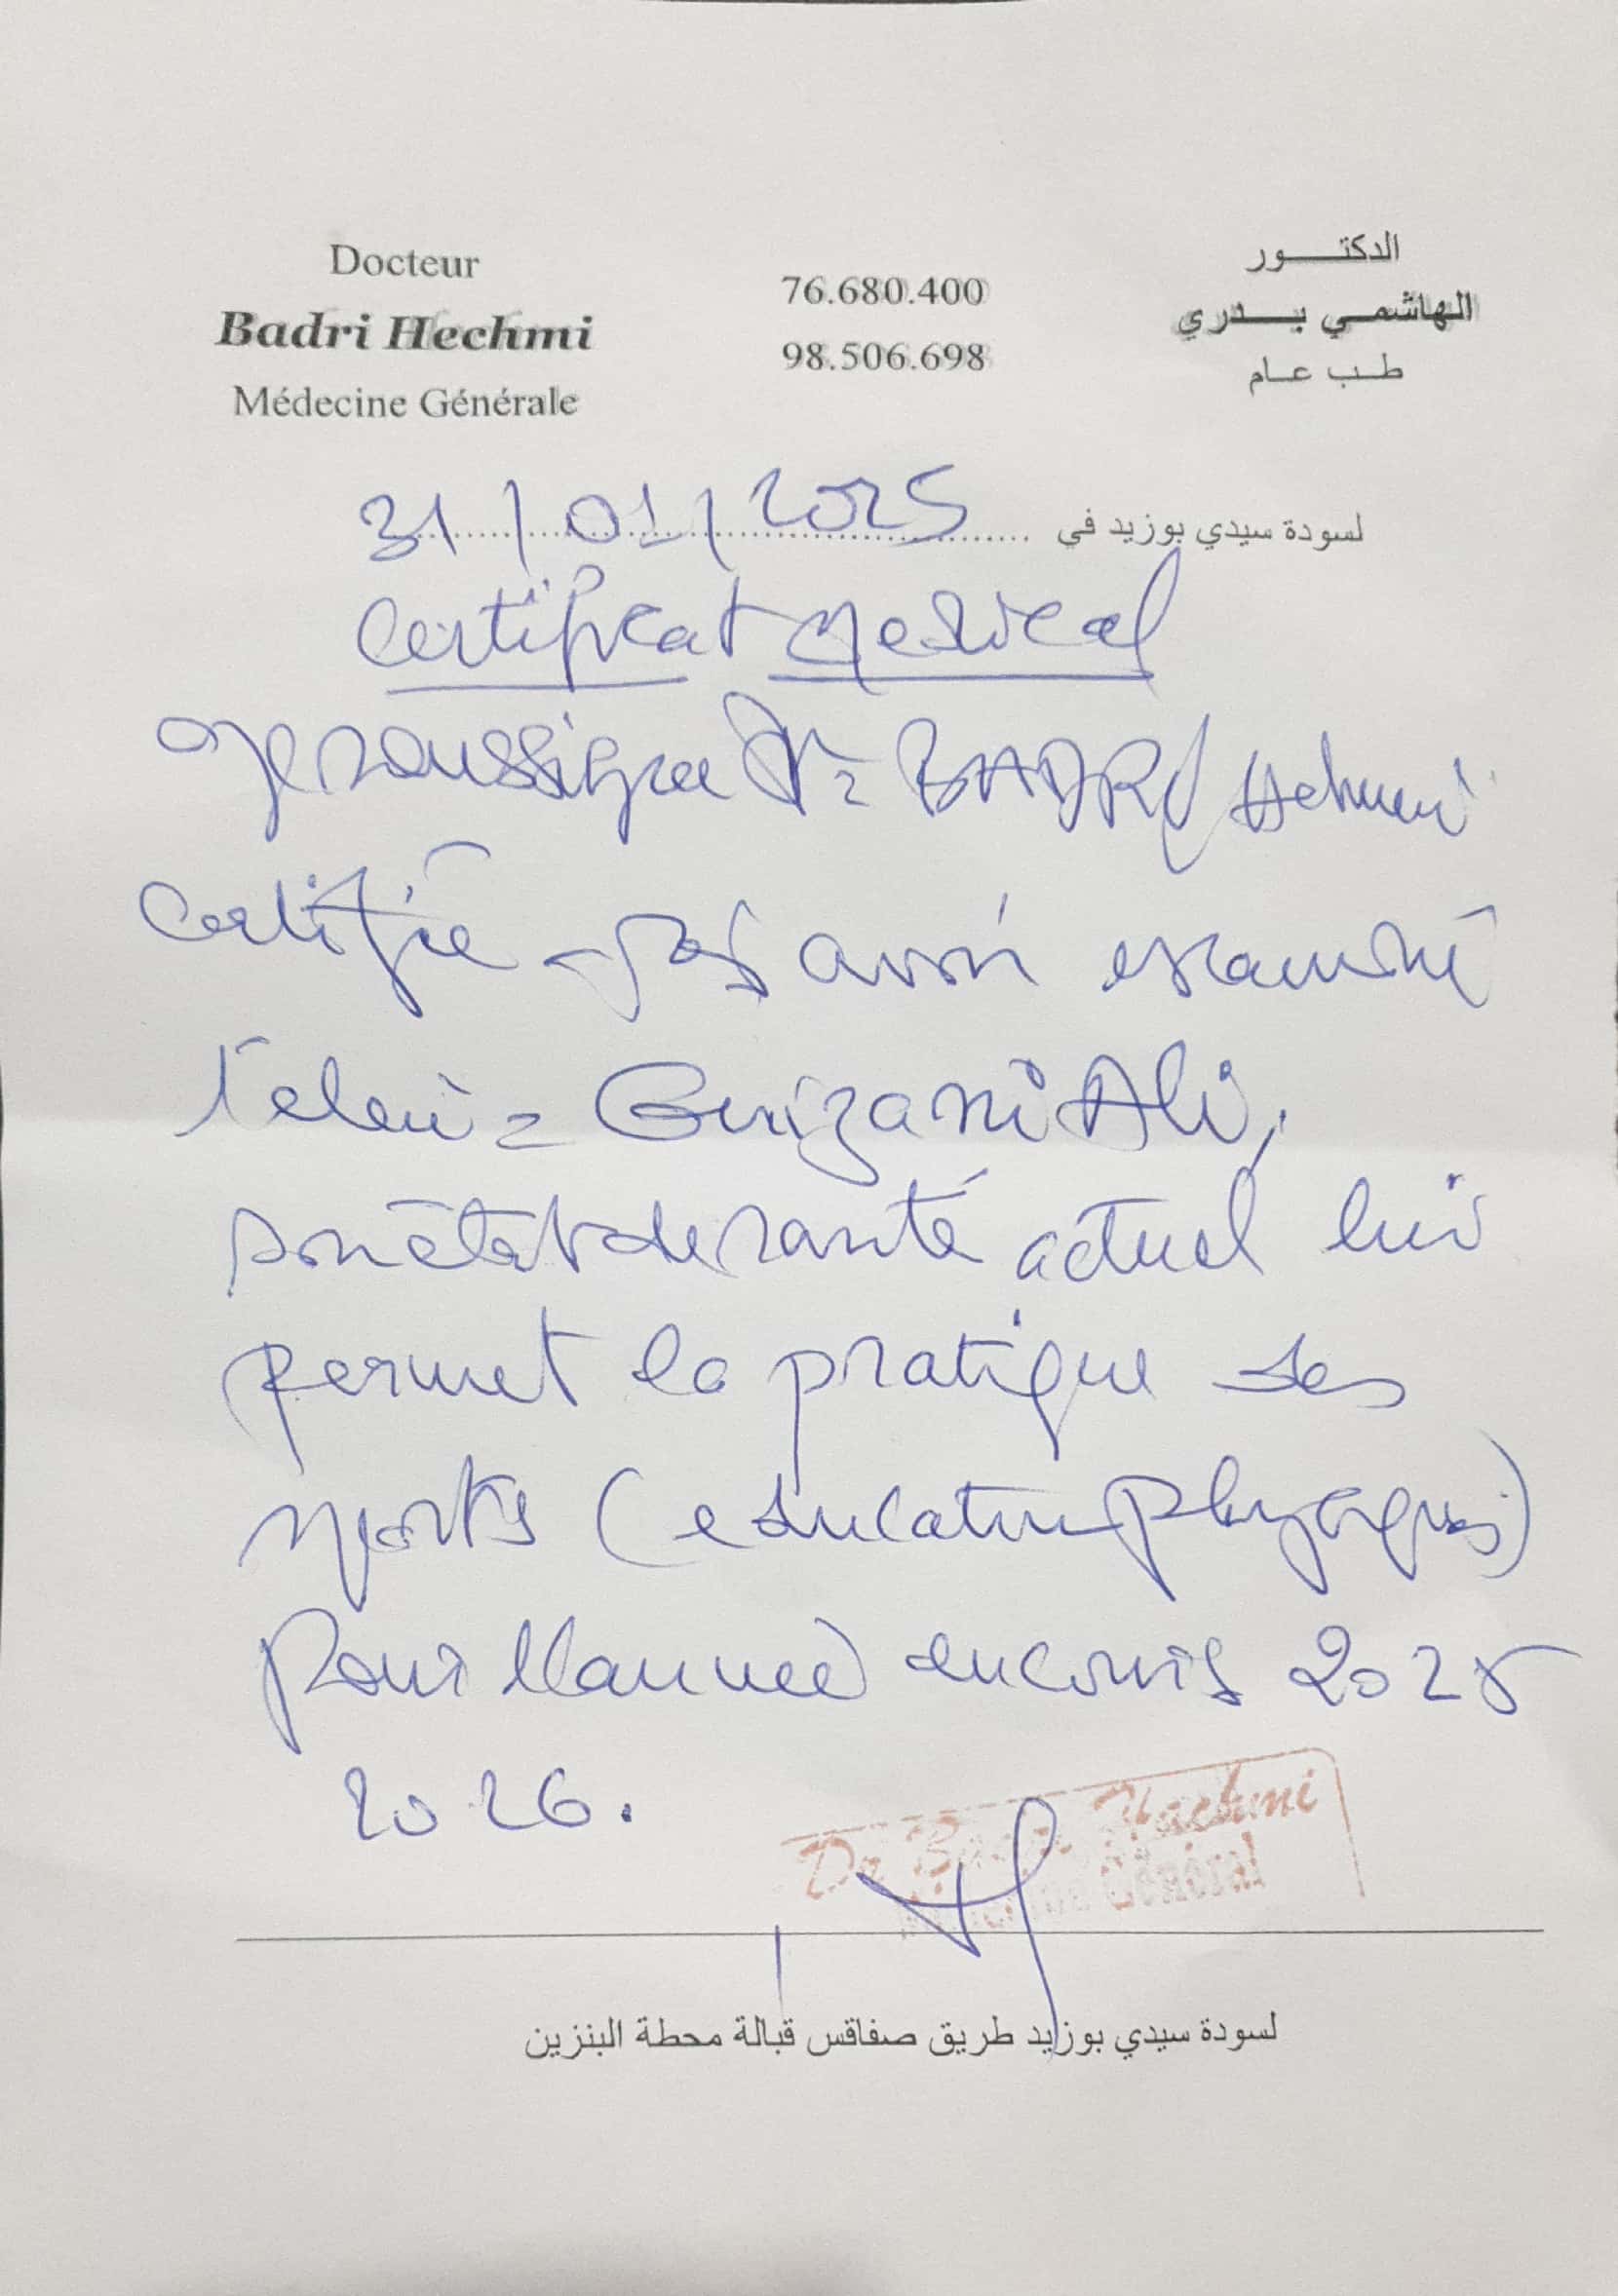 Docteur
Badri Hechmi
Médecine Générale
76.680.400
98.506.698
الدكتـــــور
الهاشمـي بـــدري
طـب عـام
لسودة سيدي بوزيد في 31/01/2025
Certificat Medical
Je soussigné Dr: BADRI Hechmi
certifie avoir examiné
l'eleve: Guizani Ali,
son état de santé actuel lui
permet la pratique des
sports (education physique)
pour l'année en cours 2025
2026.
Dr Badri Hachmi
Général
لسودة سيدي بوزيد طريق صفاقس قبالة محطة البنزين